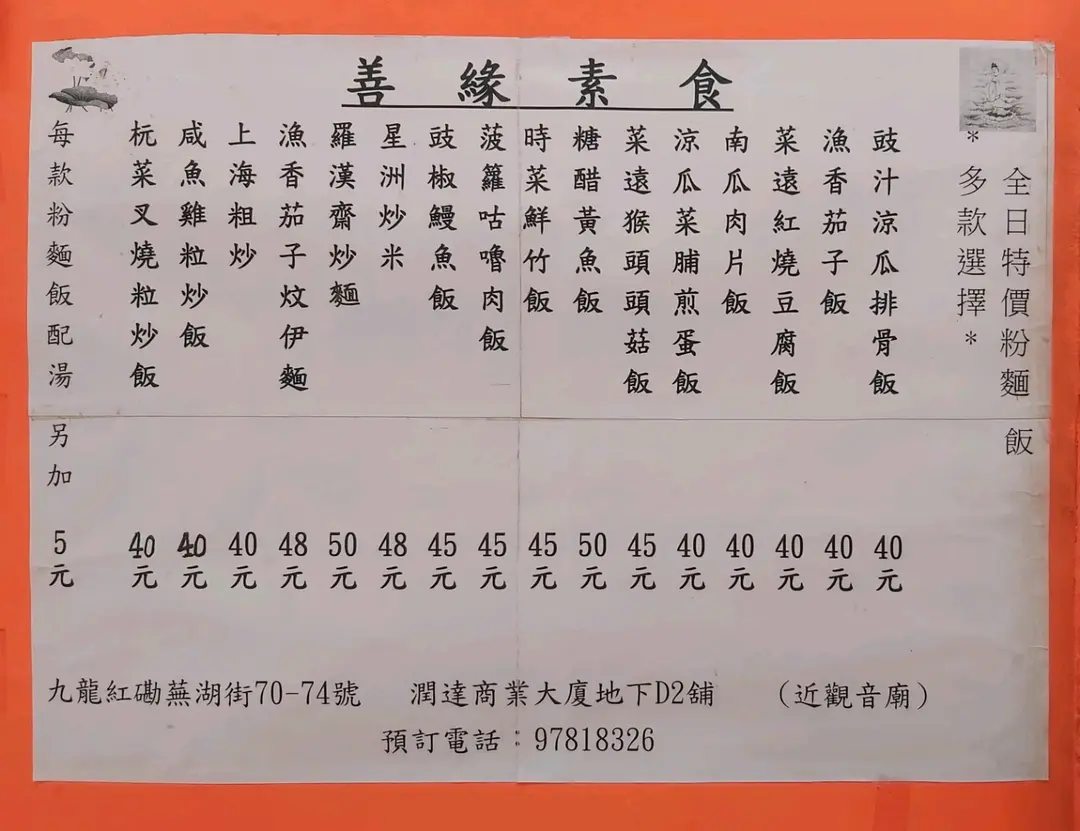 善緣素食
全日特價粉麵飯
*多款選擇*
豉汁涼瓜排骨飯 40元
漁香茄子飯 40元
菜遠紅燒豆腐飯 40元
南瓜肉片飯 40元
涼瓜菜脯煎蛋飯 40元
菜遠猴頭頭菇飯 45元
糖醋黃魚飯 50元
時菜鮮竹飯 45元
菠籮咕嚕肉飯 45元
豉椒鰻魚飯 45元
星洲炒米 48元
羅漢齋炒麵 50元
漁香茄子炆伊麵 48元
上海粗炒 40元
咸魚雞粒炒飯 40元
杬菜叉燒粒炒飯 40元
每款粉麵飯配湯另加 5元
九龍紅磡蕪湖街70-74號 潤達商業大廈地下D2舖 (近觀音廟)
預訂電話：97818326